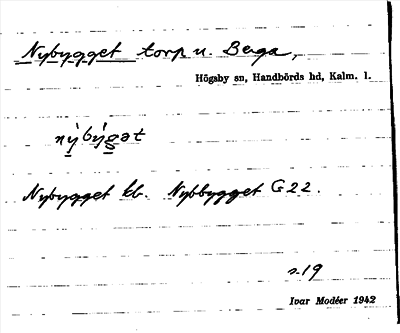 Nybygget torp u. Berga,
Högsby sn, Handbörds hd, Kalm. l.
nỳbýgət
Nybygget kb. Nybbygget G22.
s.19
Ivar Modéer 1942